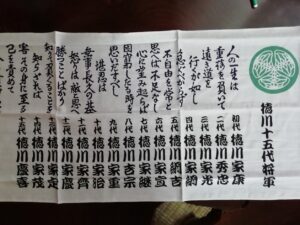 徳川十五代将軍
人の一生は
重荷を負いて
遠き道を
行くが如し
急ぐべからず
不自由を常と
思へば不足なし
心に望み起らば
困窮したる時を
思い出すべし
堪忍は
無事長久の基
怒りは敵と思へ
勝つことばかり
くることを
知らざれば
害その身に至る
己を責めて
初代 徳川家康
二代 徳川秀忠
三代 徳川家光
四代 徳川家綱
五代 徳川綱吉
六代 徳川家宣
七代 徳川家継
八代 徳川吉宗
九代 徳川家重
十代 徳川家治
十一代 徳川家齊
十二代 徳川家慶
十三代 徳川家定
十四代 徳川家茂
十五代 徳川慶喜